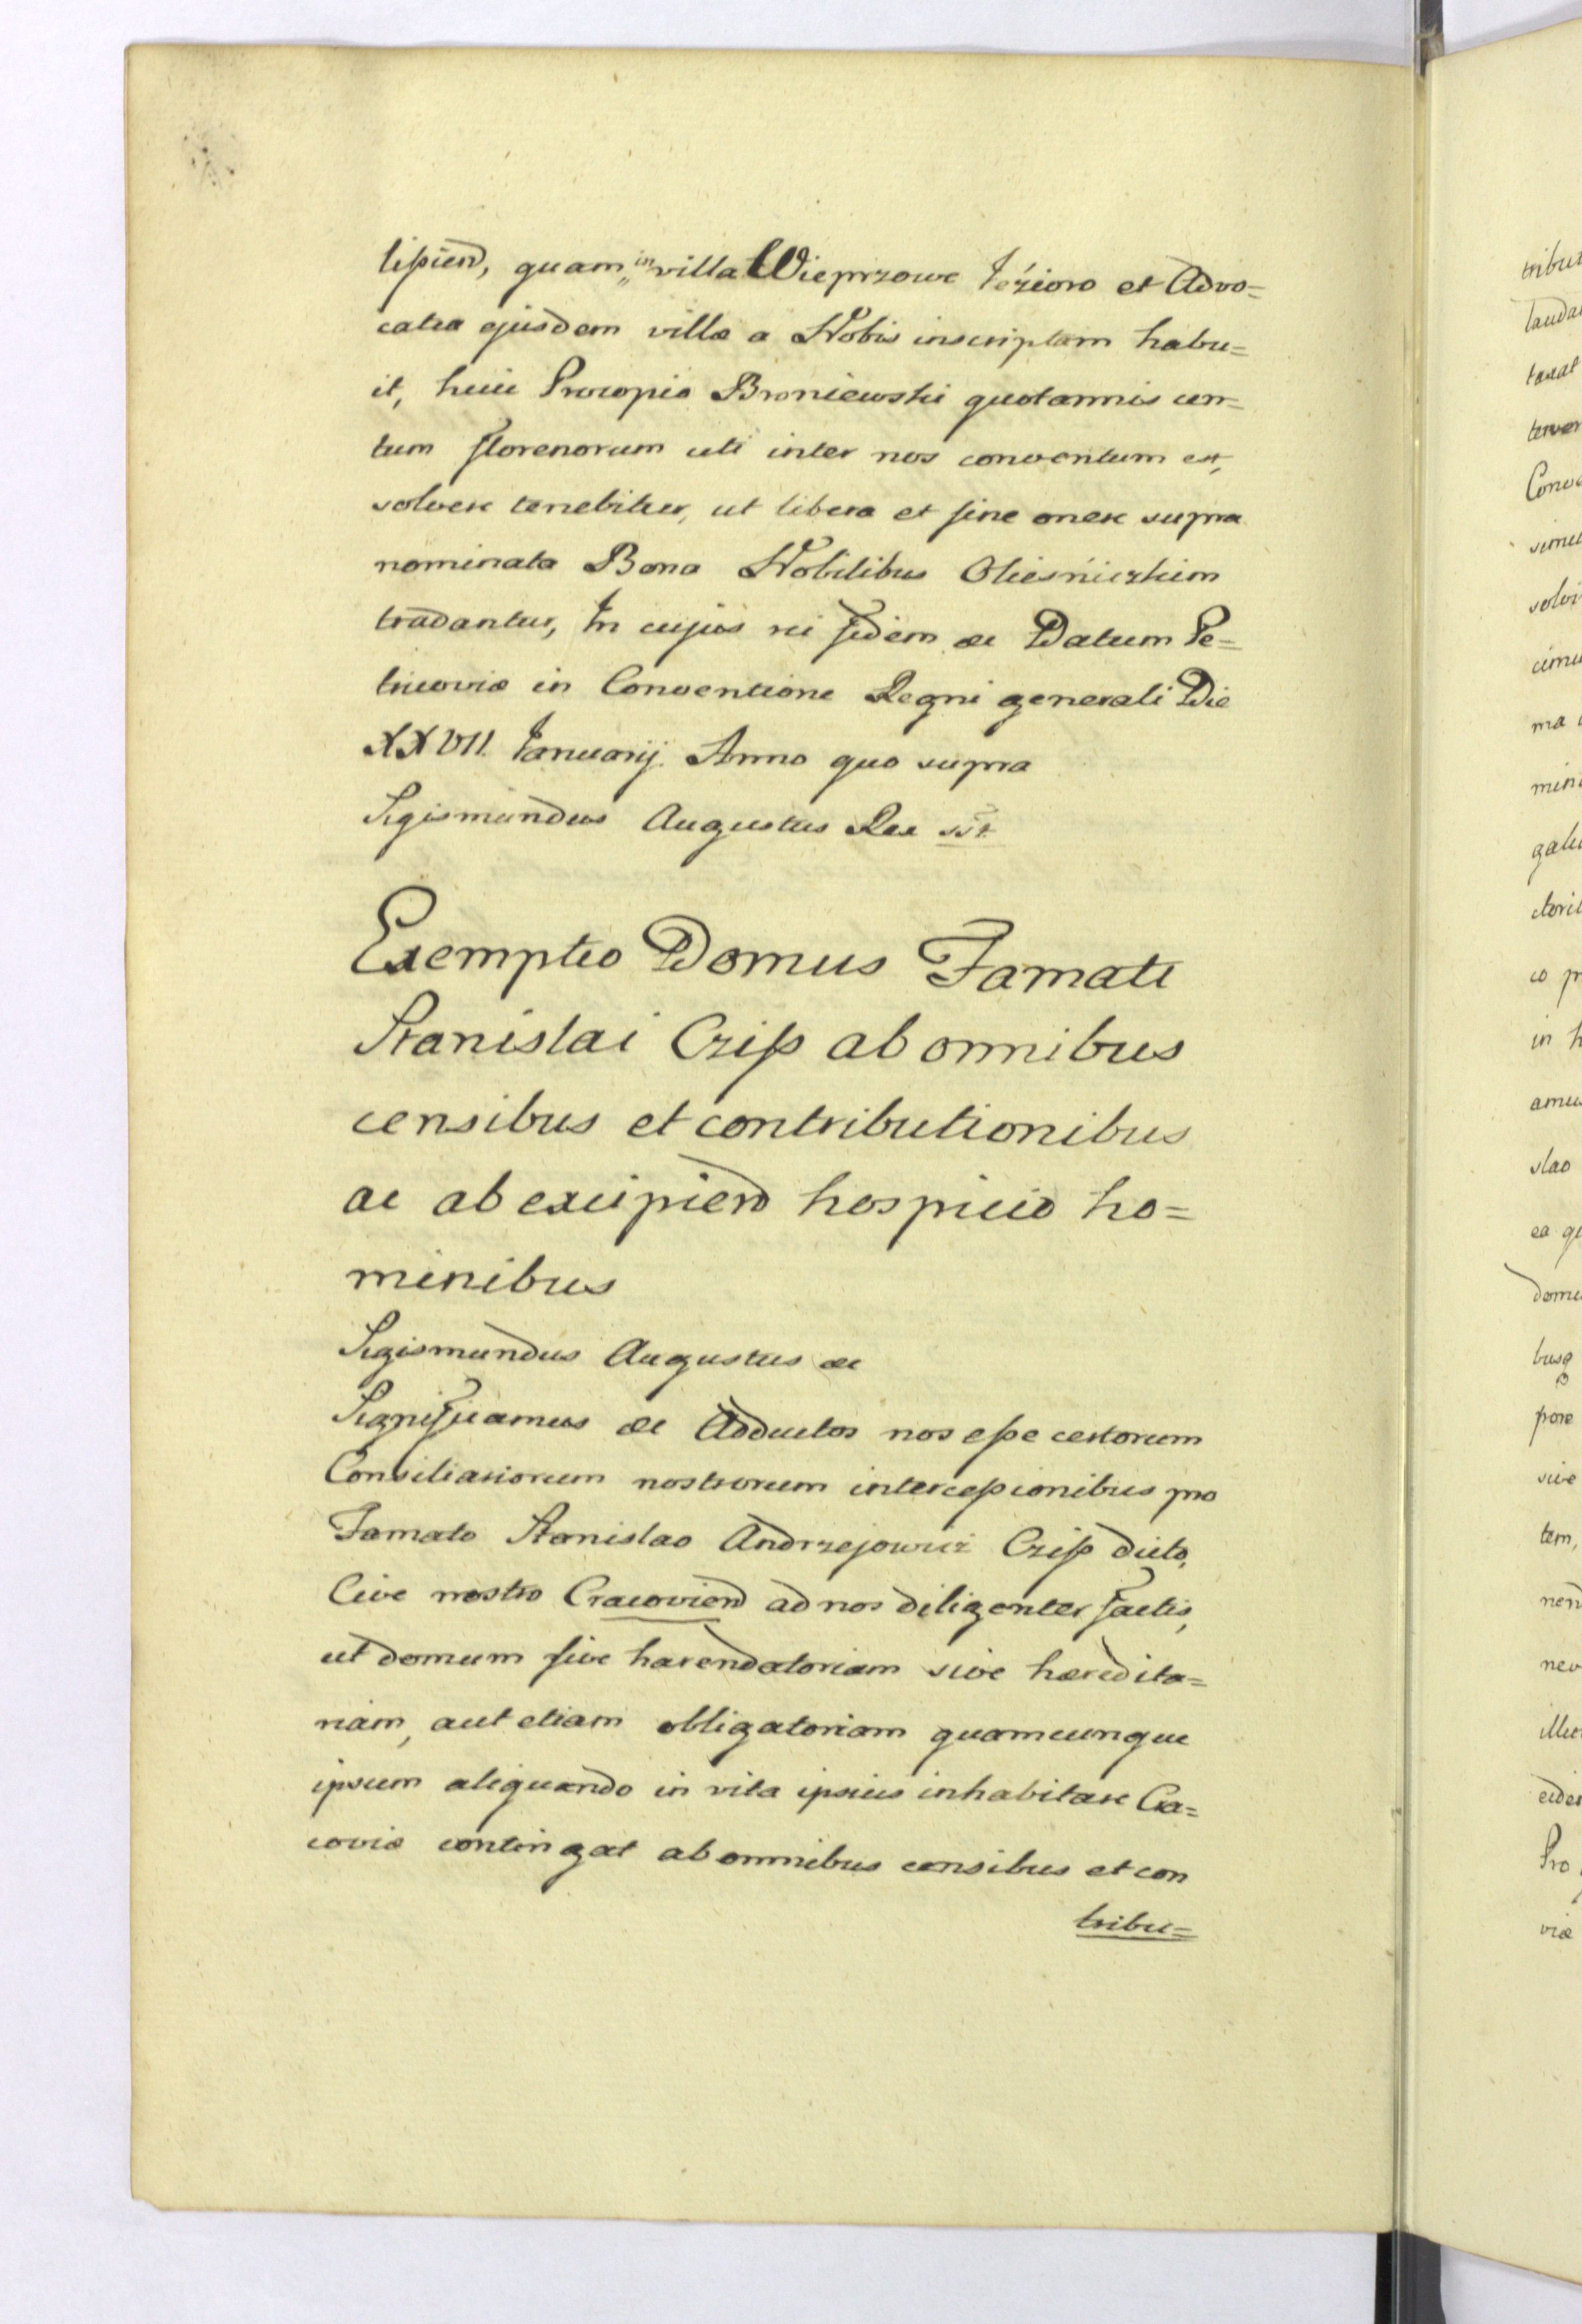 lissien, quam in villa Wieprzowe Jezioro et Advo=
catia ejusdem villæ a Nobis inscriptam habu=
it, huic Procopio Broniewski quotannis cen=
tum florenorum uti inter nos conventum est,
solvere tenebitur, ut libera et sine onere supra
nominata Bona Nobilibus Olieśnickim
tradantur, In cujus rei fidem &c Datum Pe=
tricoviæ in Conventione Regni generali Die
XXVII. Januarij. Anno quo supra
Sigismundus Augustus Rex sst
Exemptio Domus Famati
Stanislai Cziss ab omnibus
censibus et contributionibus
ac ab excipien hospicio ho=
minibus
Sigismundus Augustus &c
Significamus &c Adductos nos esse certorum
Consiliariorum nostrorum intercessionibus pro
Famato Stanislao Andrzejowicz Cziss dicto,
Cive nostro Cracovien ad nos diligenter factis,
ut domum sive harendatoriam sive hæredita=
riam, aut etiam obligatoriam quamcunque
ipsum aliquando in vita ipsius inhabitare Cra=
coviæ contingat ab omnibus censibus et con
tribu=